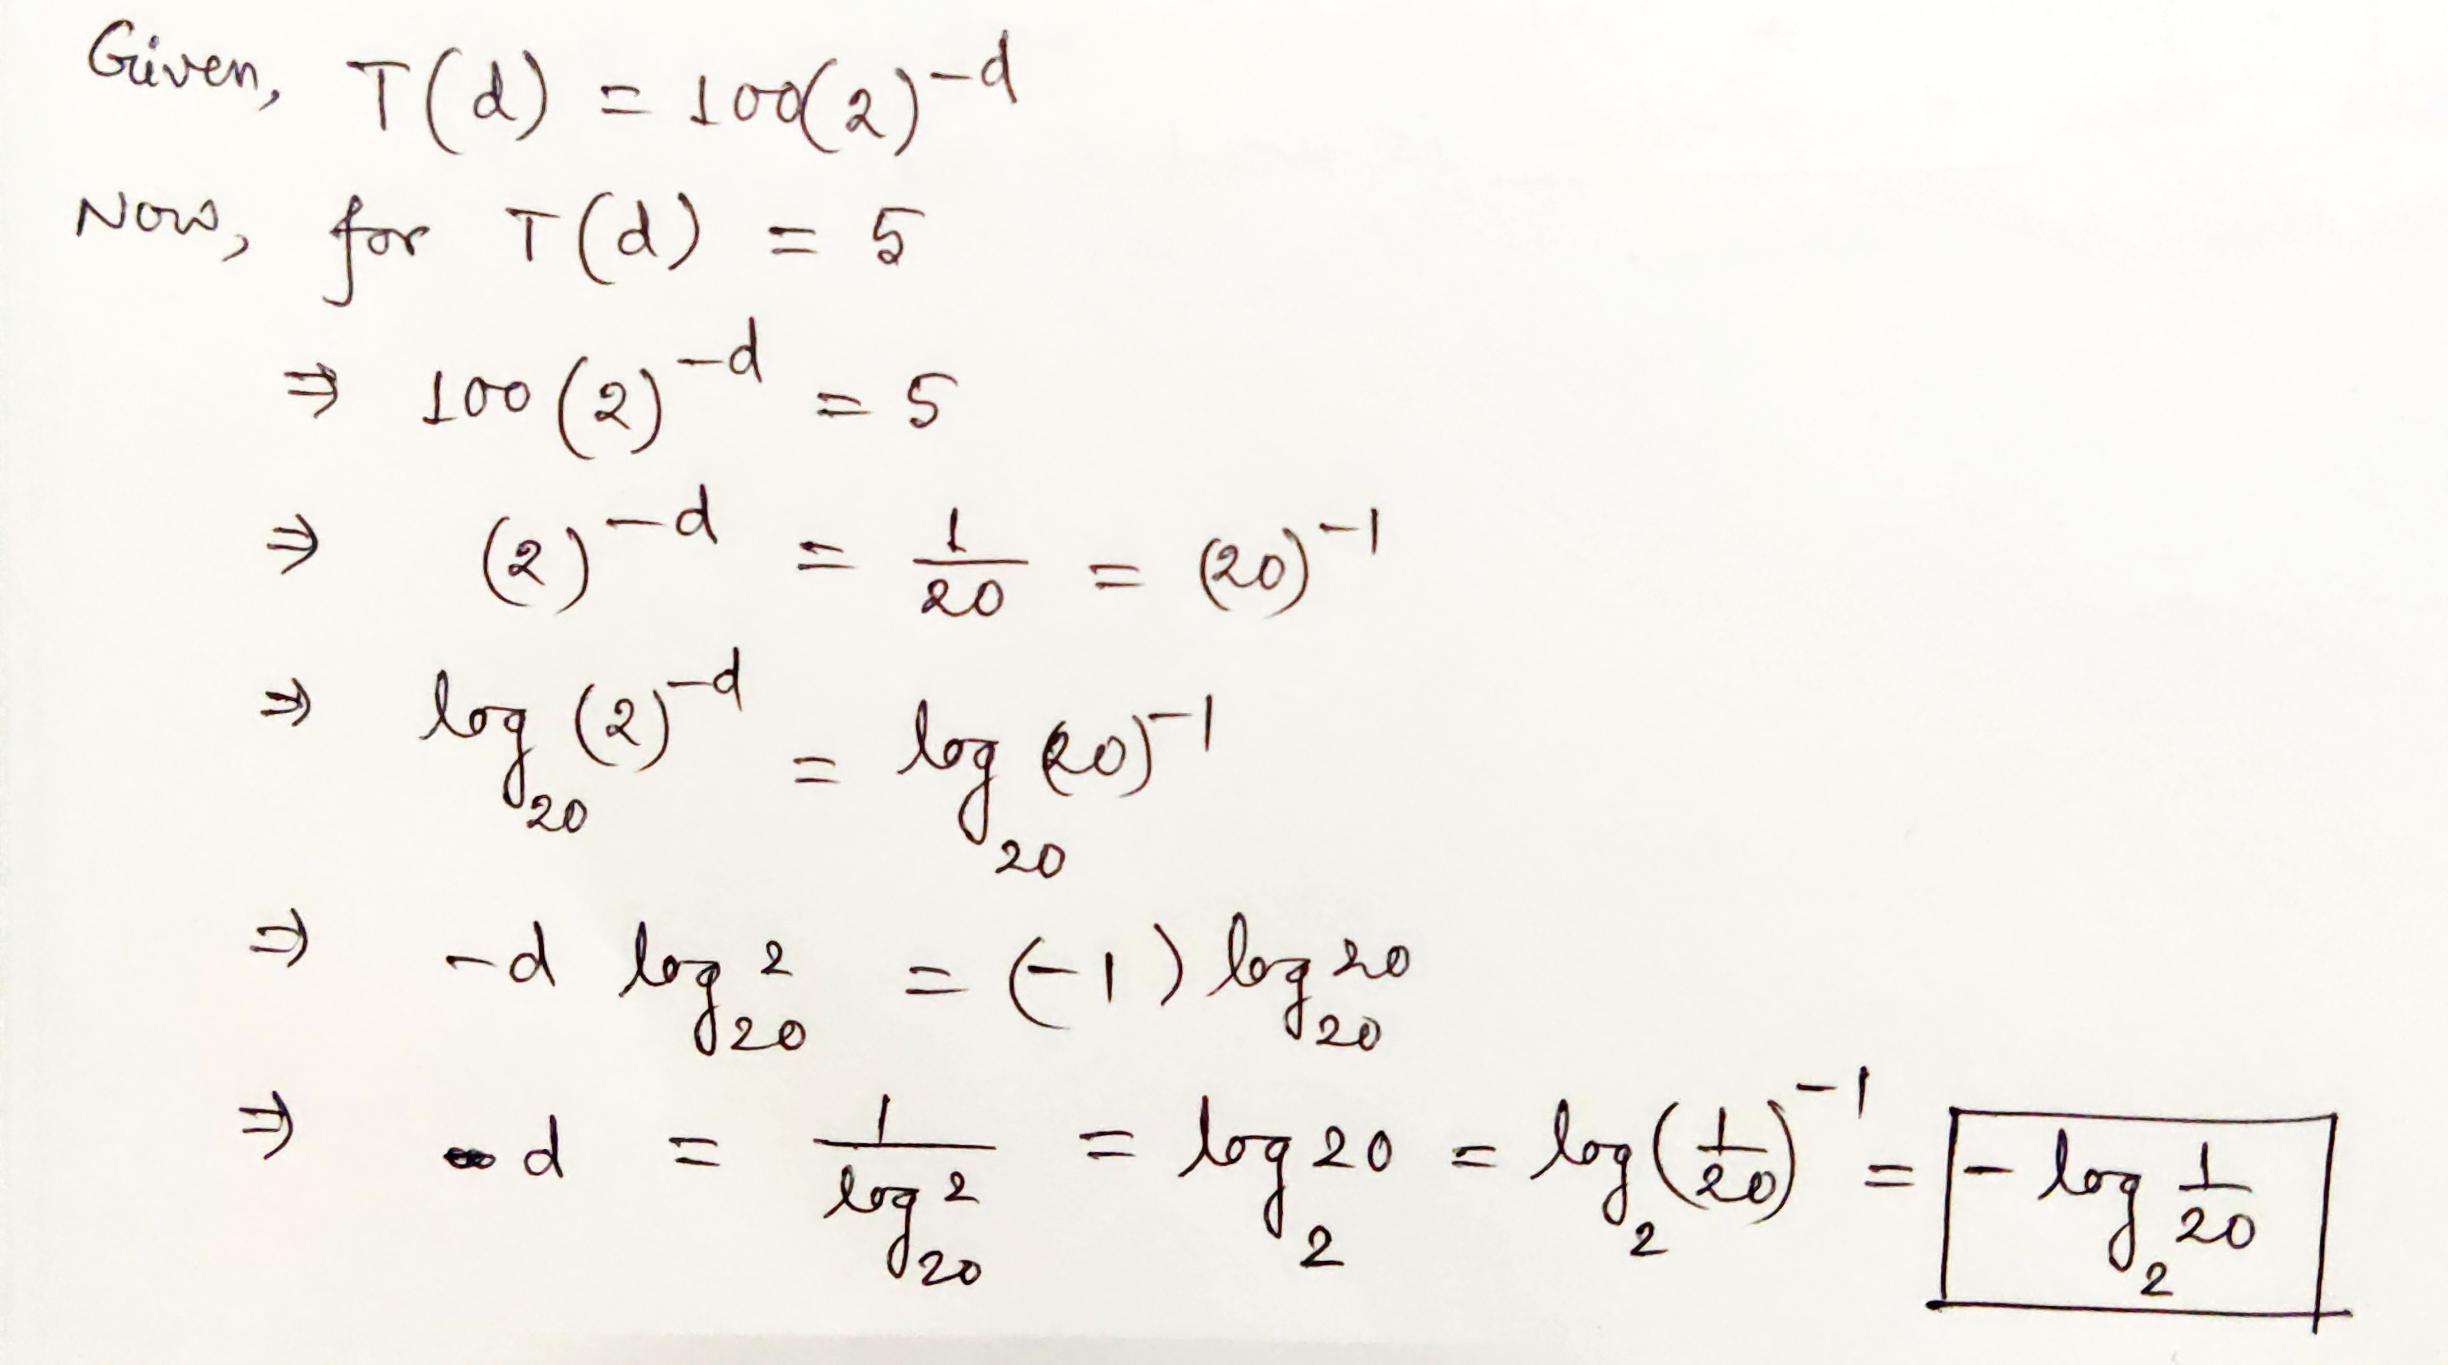 Given, T(d) = 100(2)^{-d}
Now, for T(d) = 5
⇒ 100(2)^{-d} = 5
⇒ (2)^{-d} = \frac{1}{20} = (20)^{-1}
⇒ log_{20} (2)^{-d} = log_{20} (20)^{-1}
⇒ -d log_{20} 2 = (-1) log_{20} 20
⇒ d = \frac{1}{log_{20} 2} = log_{2} 20 = log_{2} (\frac{1}{20})^{-1} = - log_{2} \frac{1}{20}